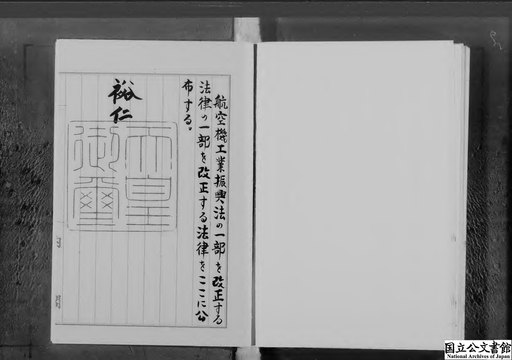 航空機工業振興法の一部を改正する
法律の一部を改正する法律をここに公
布する。
裕仁
天皇
御璽
国立公文書館
National Archives of Japan